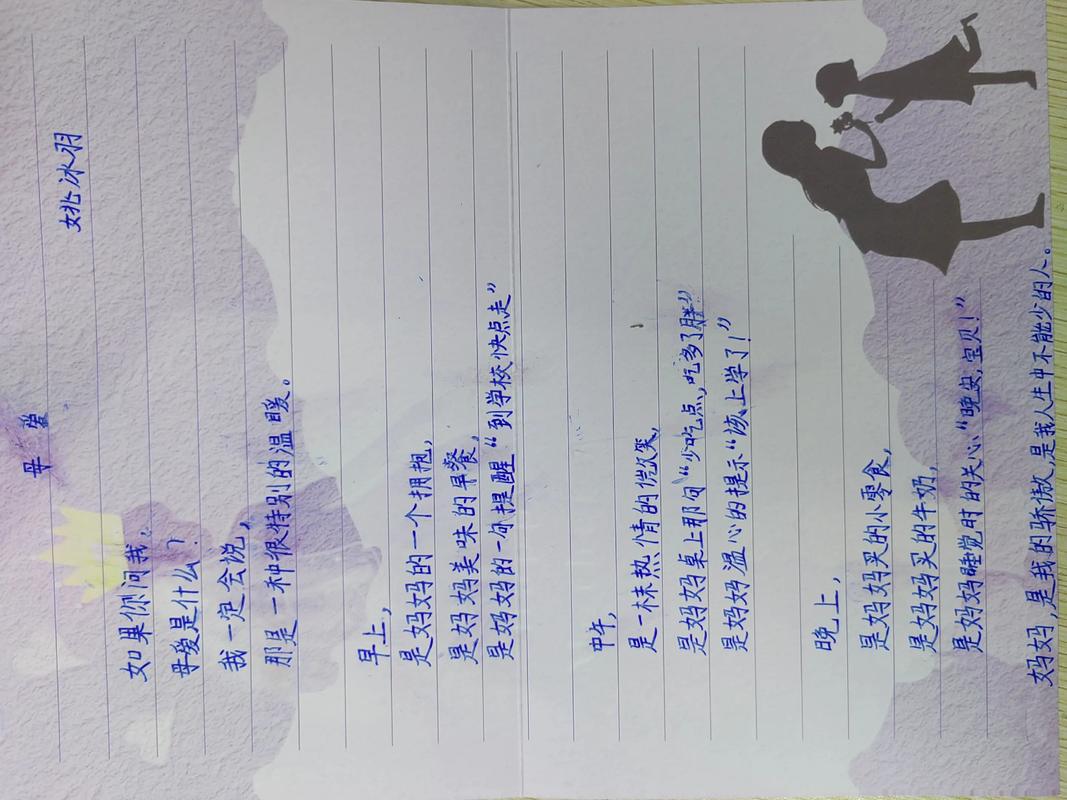 母爱
姚冰羽
如果你问我,
母爱是什么?
我一定会说,
那是一种很特别的温暖。
早上,
是妈妈的一个拥抱,
是妈妈美味的早餐,
是妈妈的一句提醒“到学校快点走”
中午,
是一抹热情的微笑,
是妈妈桌上那句“少吃点,吃多了胖”
是妈妈温心的提示“该上学了!”
晚上,
是妈妈买的小零食,
是妈妈买的牛奶,
是妈妈睡觉时的关心“晚安,宝贝!”
妈妈,是我的骄傲,是我人生中不能少的人。